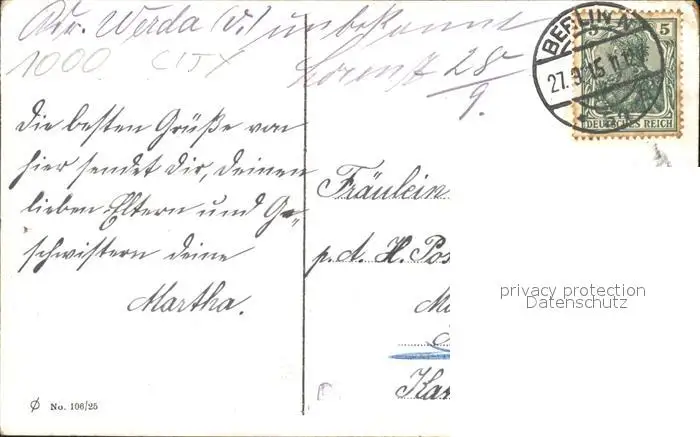 Adr. Werda (V.) unbekannt
1000 CITY
Lorenz 28/9.
BERLIN N.
27.9.15 11-12V
5 5
DEUTSCHES REICH
Die besten Grüße von
hier sendet dir, deinen
lieben Eltern und Ge-
schwistern deine
Martha.
Fräulein
p. d. H. Pos
Kar
privacy protection
Datenschutz
No. 106/25